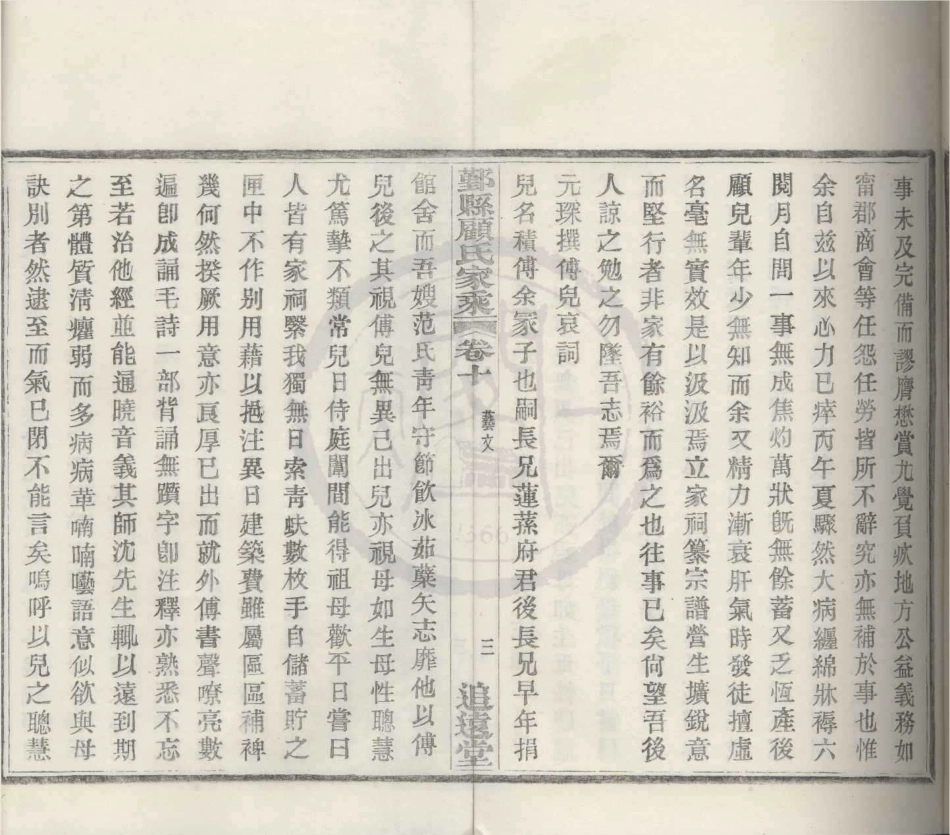 事未及完備而謬膺懋賞尤覺負疚地方公益義務如
甯郡商會等任怨任勞皆所不辭究亦無補於事也惟
余自兹以來心力已瘁丙午夏驟然大病纏綿牀褥六
閱月自問一事無成焦灼萬狀旣無餘蓄又乏恆產後
顧兒輩年少無知而余又精力漸衰肝氣時發徒擅虛
名毫無實效是以汲汲焉立家祠纂宗譜營生壙銳意
而堅行者非家有餘裕而爲之也往事已矣尙望吾後
人諒之勉之勿墜吾志焉爾
元琛撰傳兒哀詞
兒名積傳余冢子也嗣長兄蓮蓀府君後長兄早年捐
鄞縣顧氏家乘 卷十 藝文 三 追遠堂
館舍而吾嫂范氏靑年守節飮冰茹蘗矢志靡他以傳
兒後之其視傳兒無異己出兒亦視母如生母性聰慧
尤篤摯不類常兒日侍庭闈間能得祖母歡平日嘗曰
人皆有家祠繄我獨無日索靑蚨數枚手自儲蓄貯之
匣中不作别用藉以挹注異日建築費雖屬區區補裨
幾何然揆厥用意亦良厚已出而就外傅書聲嘹亮數
遍卽成誦毛詩一部背誦無躓字卽注釋亦熟悉不忘
至若治他經並能通曉音義其師沈先生輒以遠到期
之第體質淸癯弱而多病病革喃喃囈語意似欲與母
訣别者然逮至而氣已閉不能言矣嗚呼以兒之聰慧